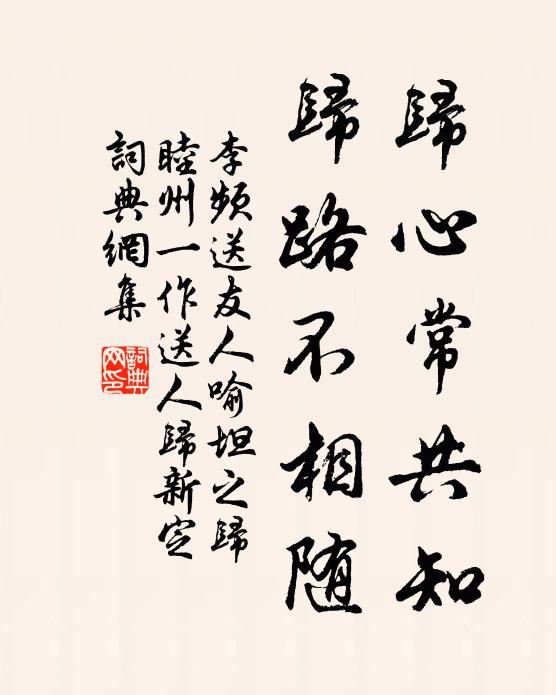 歸心常共知
歸路不相随
李頻送友人喻坦之歸
睦州一作送人歸新定
詞典網集
詞典
网印